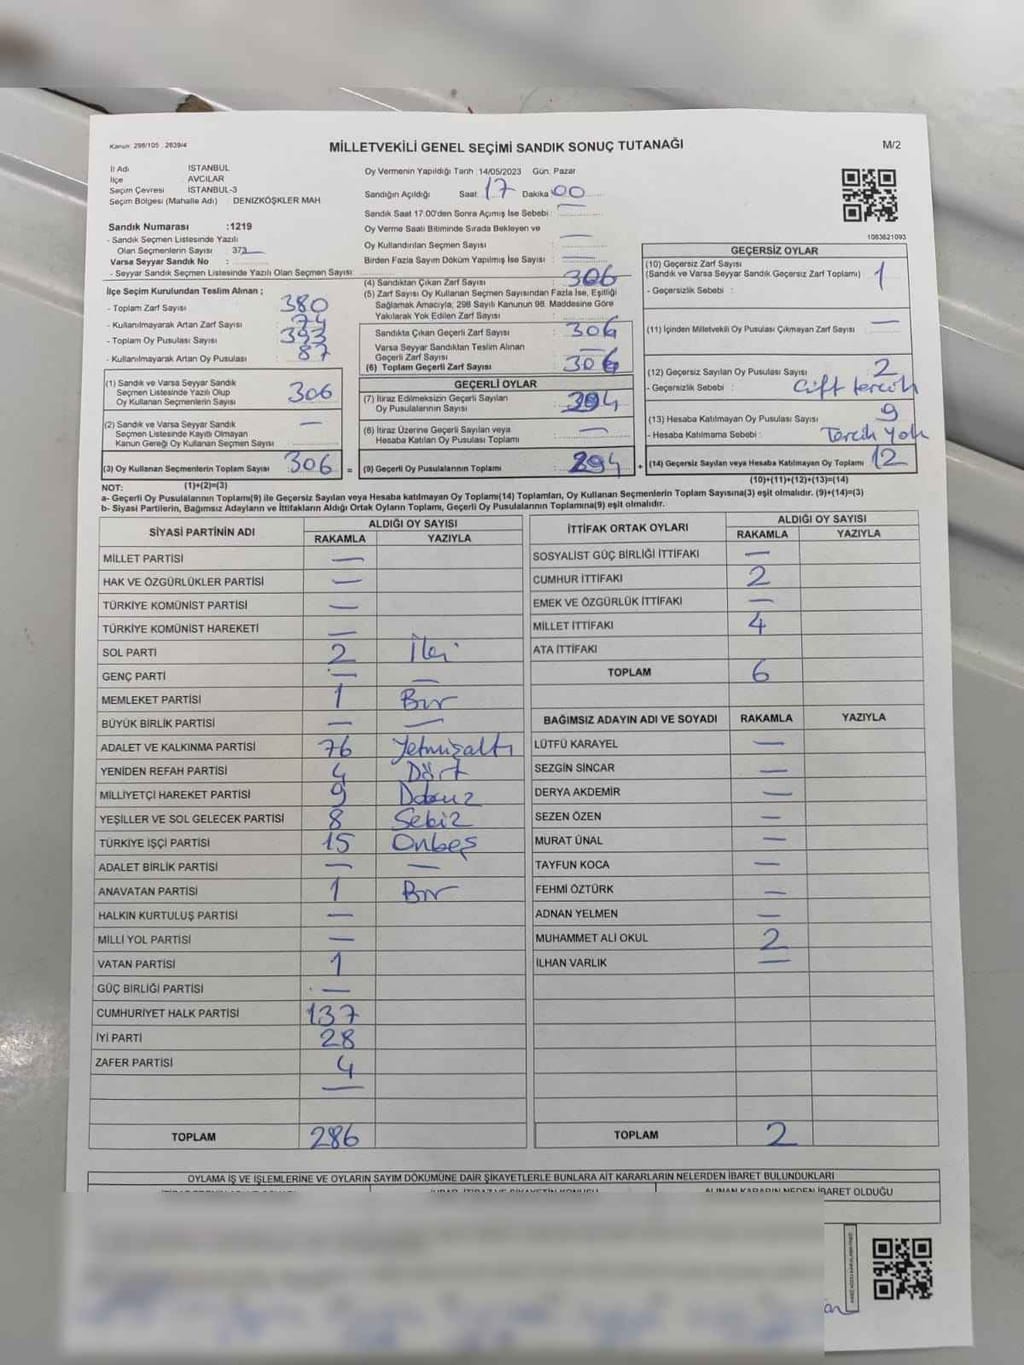 Kanun: 298/105 , 2839/4
MİLLETVEKİLİ GENEL SEÇİMİ SANDIK SONUÇ TUTANAĞI
M/2
İl Adı İSTANBUL
İlçe AVCILAR
Seçim Çevresi İSTANBUL-3
Seçim Bölgesi (Mahalle Adı) DENİZKÖŞKLER MAH
Sandık Numarası :1219
- Sandık Seçmen Listesinde Yazılı
Olan Seçmenlerin Sayısı : 373
Varsa Seyyar Sandık No :
- Seyyar Sandık Seçmen Listesinde Yazılı Olan Seçmen Sayısı:
Oy Vermenin Yapıldığı Tarih :14/05/2023 Gün: Pazar
Sandığın Açıldığı Saat: 17 Dakika: 00
Sandık Saat 17.00'den Sonra Açımış İse Sebebi : —
Oy Verme Saati Bitiminde Sırada Bekleyen ve
Oy Kullandırılan Seçmen Sayısı : —
Birden Fazla Sayım Döküm Yapılmış İse Sayısı : —
1083621093
İlçe Seçim Kurulundan Teslim Alınan ;
- Toplam Zarf Sayısı : 380
- Kullanılmayarak Artan Zarf Sayısı : 74
- Toplam Oy Pusulası Sayısı : 393
- Kullanılmayarak Artan Oy Pusulası : 87
(1) Sandık ve Varsa Seyyar Sandık
Seçmen Listesinde Yazılı Olup
Oy Kullanan Seçmenlerin Sayısı : 306
(2) Sandık ve Varsa Seyyar Sandık
Seçmen Listesinde Kayıtlı Olmayan
Kanun Gereği Oy Kullanan Seçmen Sayısı : —
(3) Oy Kullanan Seçmenlerin Toplam Sayısı : 306 =
(4) Sandıktan Çıkan Zarf Sayısı : 306
(5) Zarf Sayısı Oy Kullanan Seçmen Sayısından Fazla İse, Eşitliği
Sağlamak Amacıyla, 298 Sayılı Kanunun 98. Maddesine Göre
Yakılarak Yok Edilen Zarf Sayısı:
Sandıkta Çıkan Geçerli Zarf Sayısı : 306
Varsa Seyyar Sandıktan Teslim Alınan
Geçerli Zarf Sayısı : —
(6) Toplam Geçerli Zarf Sayısı : 306
GEÇERLİ OYLAR
(7) İtiraz Edilmeksizin Geçerli Sayılan
Oy Pusulalarının Sayısı : 294
(8) İtiraz Üzerine Geçerli Sayılan veya
Hesaba Katılan Oy Pusulası Toplamı : —
(9) Geçerli Oy Pusulalarının Toplamı : 294 +
GEÇERSİZ OYLAR
(10) Geçersiz Zarf Sayısı
(Sandık ve Varsa Seyyar Sandık Geçersiz Zarf Toplamı) : 1
- Geçersizlik Sebebi :
(11) İçinden Milletvekili Oy Pusulası Çıkmayan Zarf Sayısı : —
(12) Geçersiz Sayılan Oy Pusulası Sayısı : 2
- Geçersizlik Sebebi : Çift tercih
(13) Hesaba Katılmayan Oy Pusulası Sayısı : 9
- Hesaba Katılmama Sebebi : Tercih Yok
(14) Geçersiz Sayılan veya Hesaba Katılmayan Oy Toplamı : 12
NOT: (1)+(2)=(3)
(10)+(11)+(12)+(13)=(14)
a- Geçerli Oy Pusulalarının Toplamı(9) ile Geçersiz Sayılan veya Hesaba katılmayan Oy Toplamı(14) Toplamları, Oy Kullanan Seçmenlerin Toplam Sayısına(3) eşit olmalıdır. (9)+(14)=(3)
b- Siyasi Partilerin, Bağımsız Adayların ve İttifakların Aldığı Ortak Oyların Toplamı, Geçerli Oy Pusulalarının Toplamına(9) eşit olmalıdır.
SİYASİ PARTİNİN ADI ALDIĞI OY SAYISI
RAKAMLA YAZIYLA
MİLLET PARTİSİ —
HAK VE ÖZGÜRLÜKLER PARTİSİ —
TÜRKİYE KOMÜNİST PARTİSİ —
TÜRKİYE KOMÜNİST HAREKETİ —
SOL PARTİ 2 İki
GENÇ PARTİ — —
MEMLEKET PARTİSİ 1 Bir
BÜYÜK BİRLİK PARTİSİ — —
ADALET VE KALKINMA PARTİSİ 76 Yetmişaltı
YENİDEN REFAH PARTİSİ 4 Dört
MİLLİYETÇİ HAREKET PARTİSİ 9 Dokuz
YEŞİLLER VE SOL GELECEK PARTİSİ 8 Sekiz
TÜRKİYE İŞÇİ PARTİSİ 15 Onbeş
ADALET BİRLİK PARTİSİ — —
ANAVATAN PARTİSİ 1 Bir
HALKIN KURTULUŞ PARTİSİ —
MİLLİ YOL PARTİSİ —
VATAN PARTİSİ 1
GÜÇ BİRLİĞİ PARTİSİ —
CUMHURİYET HALK PARTİSİ 137
İYİ PARTİ 28
ZAFER PARTİSİ 4
—
TOPLAM 286
İTTİFAK ORTAK OYLARI ALDIĞI OY SAYISI
RAKAMLA YAZIYLA
SOSYALİST GÜÇ BİRLİĞİ İTTİFAKI —
CUMHUR İTTİFAKI 2
EMEK VE ÖZGÜRLÜK İTTİFAKI —
MİLLET İTTİFAKI 4
ATA İTTİFAKI
TOPLAM 6
BAĞIMSIZ ADAYIN ADI VE SOYADI RAKAMLA YAZIYLA
LÜTFÜ KARAYEL —
SEZGİN SİNCAR —
DERYA AKDEMİR —
SEZEN ÖZEN —
MURAT ÜNAL —
TAYFUN KOCA —
FEHMİ ÖZTÜRK —
ADNAN YELMEN —
MUHAMMET ALİ OKUL 2
İLHAN VARLIK —
TOPLAM 2
OYLAMA İŞ VE İŞLEMLERİNE VE OYLARIN SAYIM DÖKÜMÜNE DAİR ŞİKAYETLERLE BUNLARA AİT KARARLARIN NELERDEN İBARET BULUNDUKLARI
ALINAN KARARIN NEDEN İBARET OLDUĞU